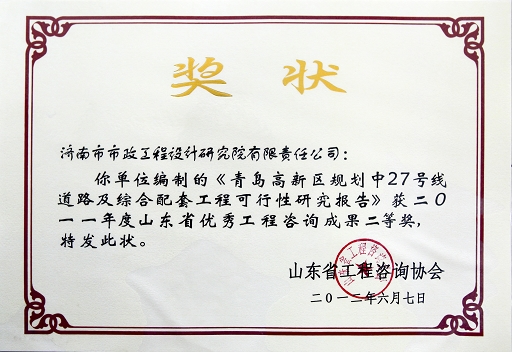 奖状
济南市市政工程设计研究院有限责任公司：
你单位编制的《青岛高新区规划中27号线
道路及综合配套工程可行性研究报告》获二〇
一一年度山东省优秀工程咨询成果二等奖，
特发此状。
山东省工程咨询协会
二〇一二年六月七日